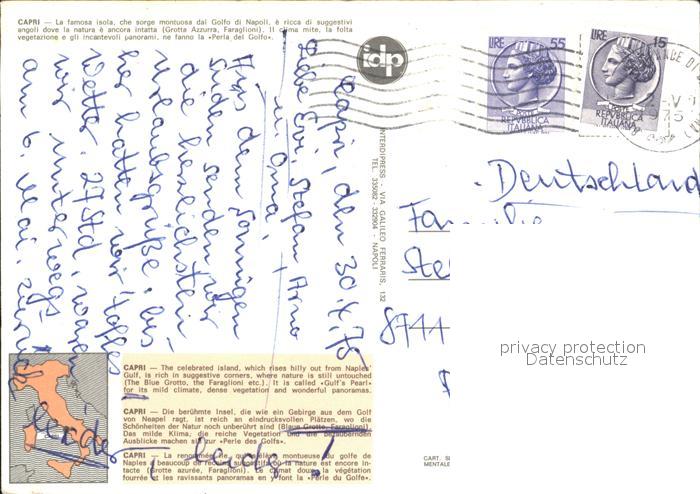 CAPRI — La famosa isola, che sorge montuosa dal Golfo di Napoli, è ricca di suggestivi
angoli dove la natura è ancora intatta (Grotta Azzurra, Faraglioni). Il clima mite, la folta
vegetazione e gli incantevoli panorami, ne fanno la «Perla del Golfo».
Capri, den 30.4.75
Liebe Evi, Stefan, Arno
u. Oma,
Aus dem sonnigen
Süden senden wir
die herzlichsten
Urlaubsgrüße. Bis-
her hatten wir tolles
Wetter. 27 Std. waren
wir unterwegs.
Am 6. Mai zurück
leider, leider!
idp
INTERDIPRESS - VIA GALILEO FERRARIS, 132
TEL. 335082 - 332904 - NAPOLI
LIRE 55
REPVBBLICA
ITALIANA
LIRE 15
REPVBBLICA
ITALIANA
Deutschland
Familie
8741
privacy protection
Datenschutz
CAPRI — The celebrated island, which rises hilly out from Naples'
Gulf, is rich in suggestive corners, where nature is still untouched
(The Blue Grotto, the Faraglioni etc.). It is called «Gulf's Pearl»
for its mild climate, dense vegetation and wonderful panoramas.
CAPRI — Die berühmte Insel, die wie ein Gebirge aus dem Golf
von Neapel ragt, ist reich an eindrucksvollen Plätzen, wo die
Schönheiten der Natur noch unberührt sind (Blaue Grotte, Faraglioni).
Das milde Klima, die reiche Vegetation und die bezaubernden
Ausblicke machen sie zur «Perle des Golfs».
CAPRI — La renommée île, qui s'élève montueuse du golfe de
Naples a beaucoup de recoins suggestifs où la nature est encore in-
tacte (Grotte azurée, Faraglioni). Le climat doux, la végétation
fourrée et les ravissants panoramas en y font la «Perle du Golfe».
CART. S
MENTALE